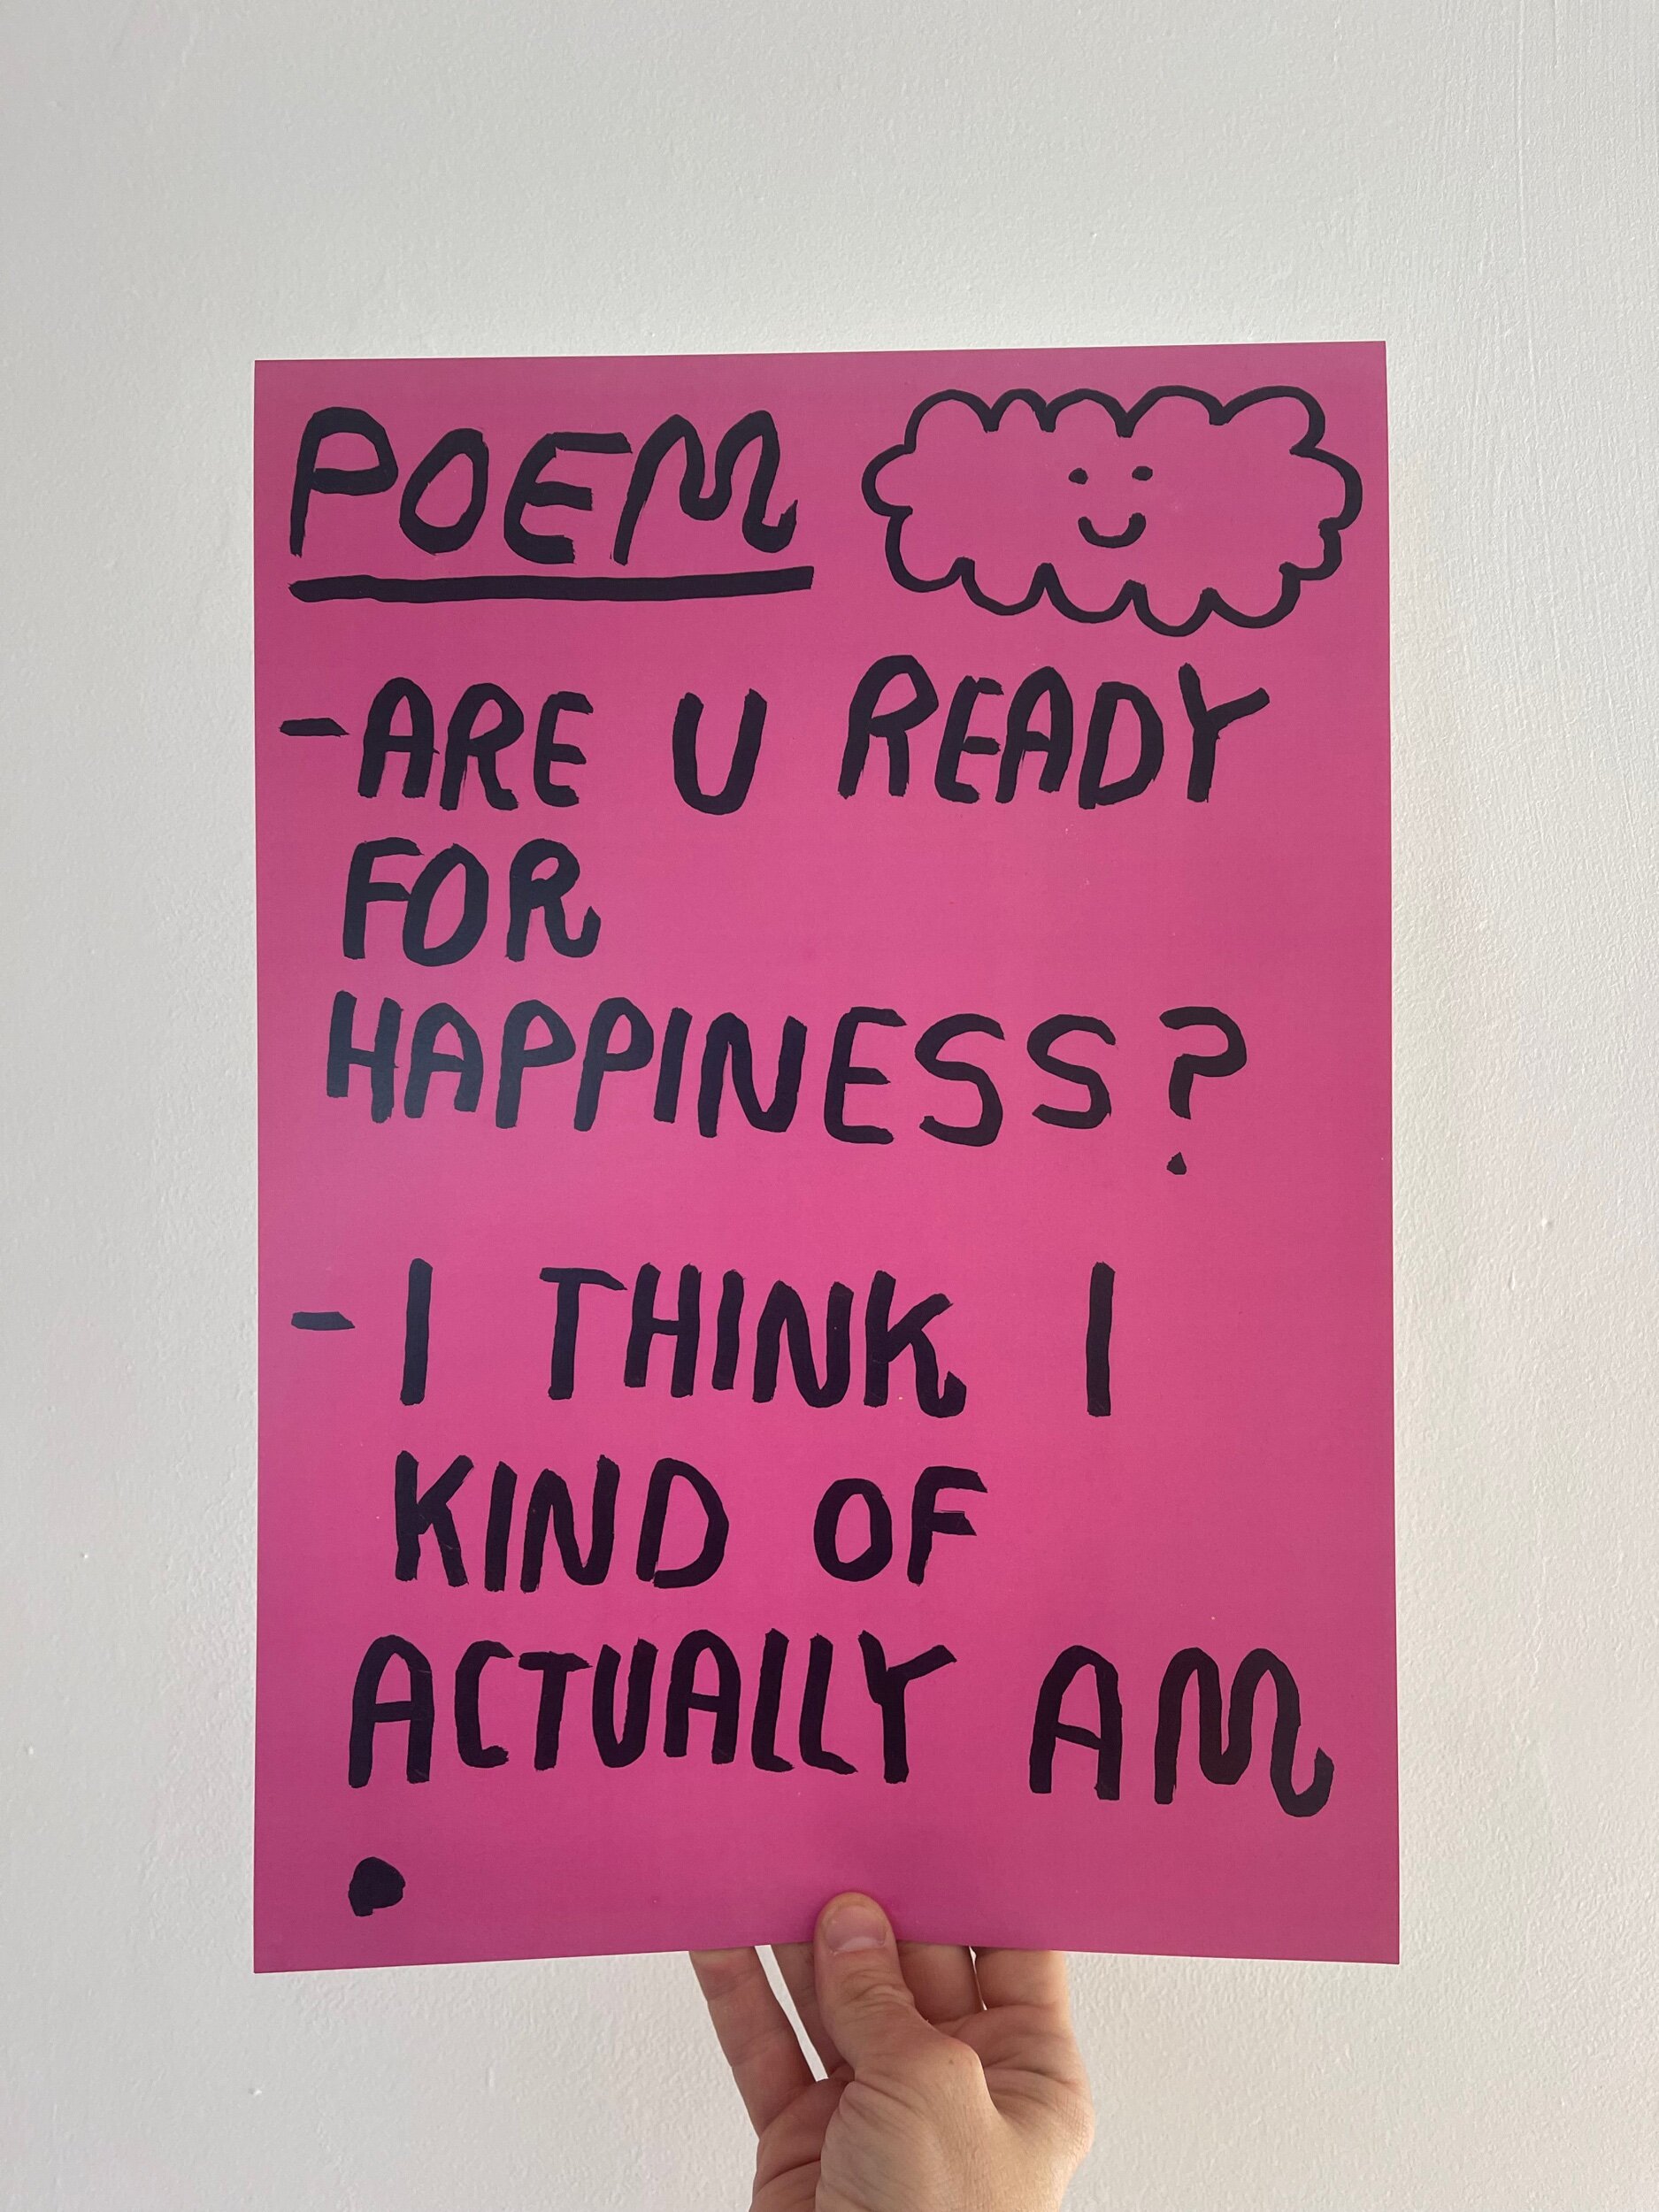 POEM
-ARE U READY
FOR
HAPPINESS?
-I THINK I
KIND OF
ACTUALLY AM
.